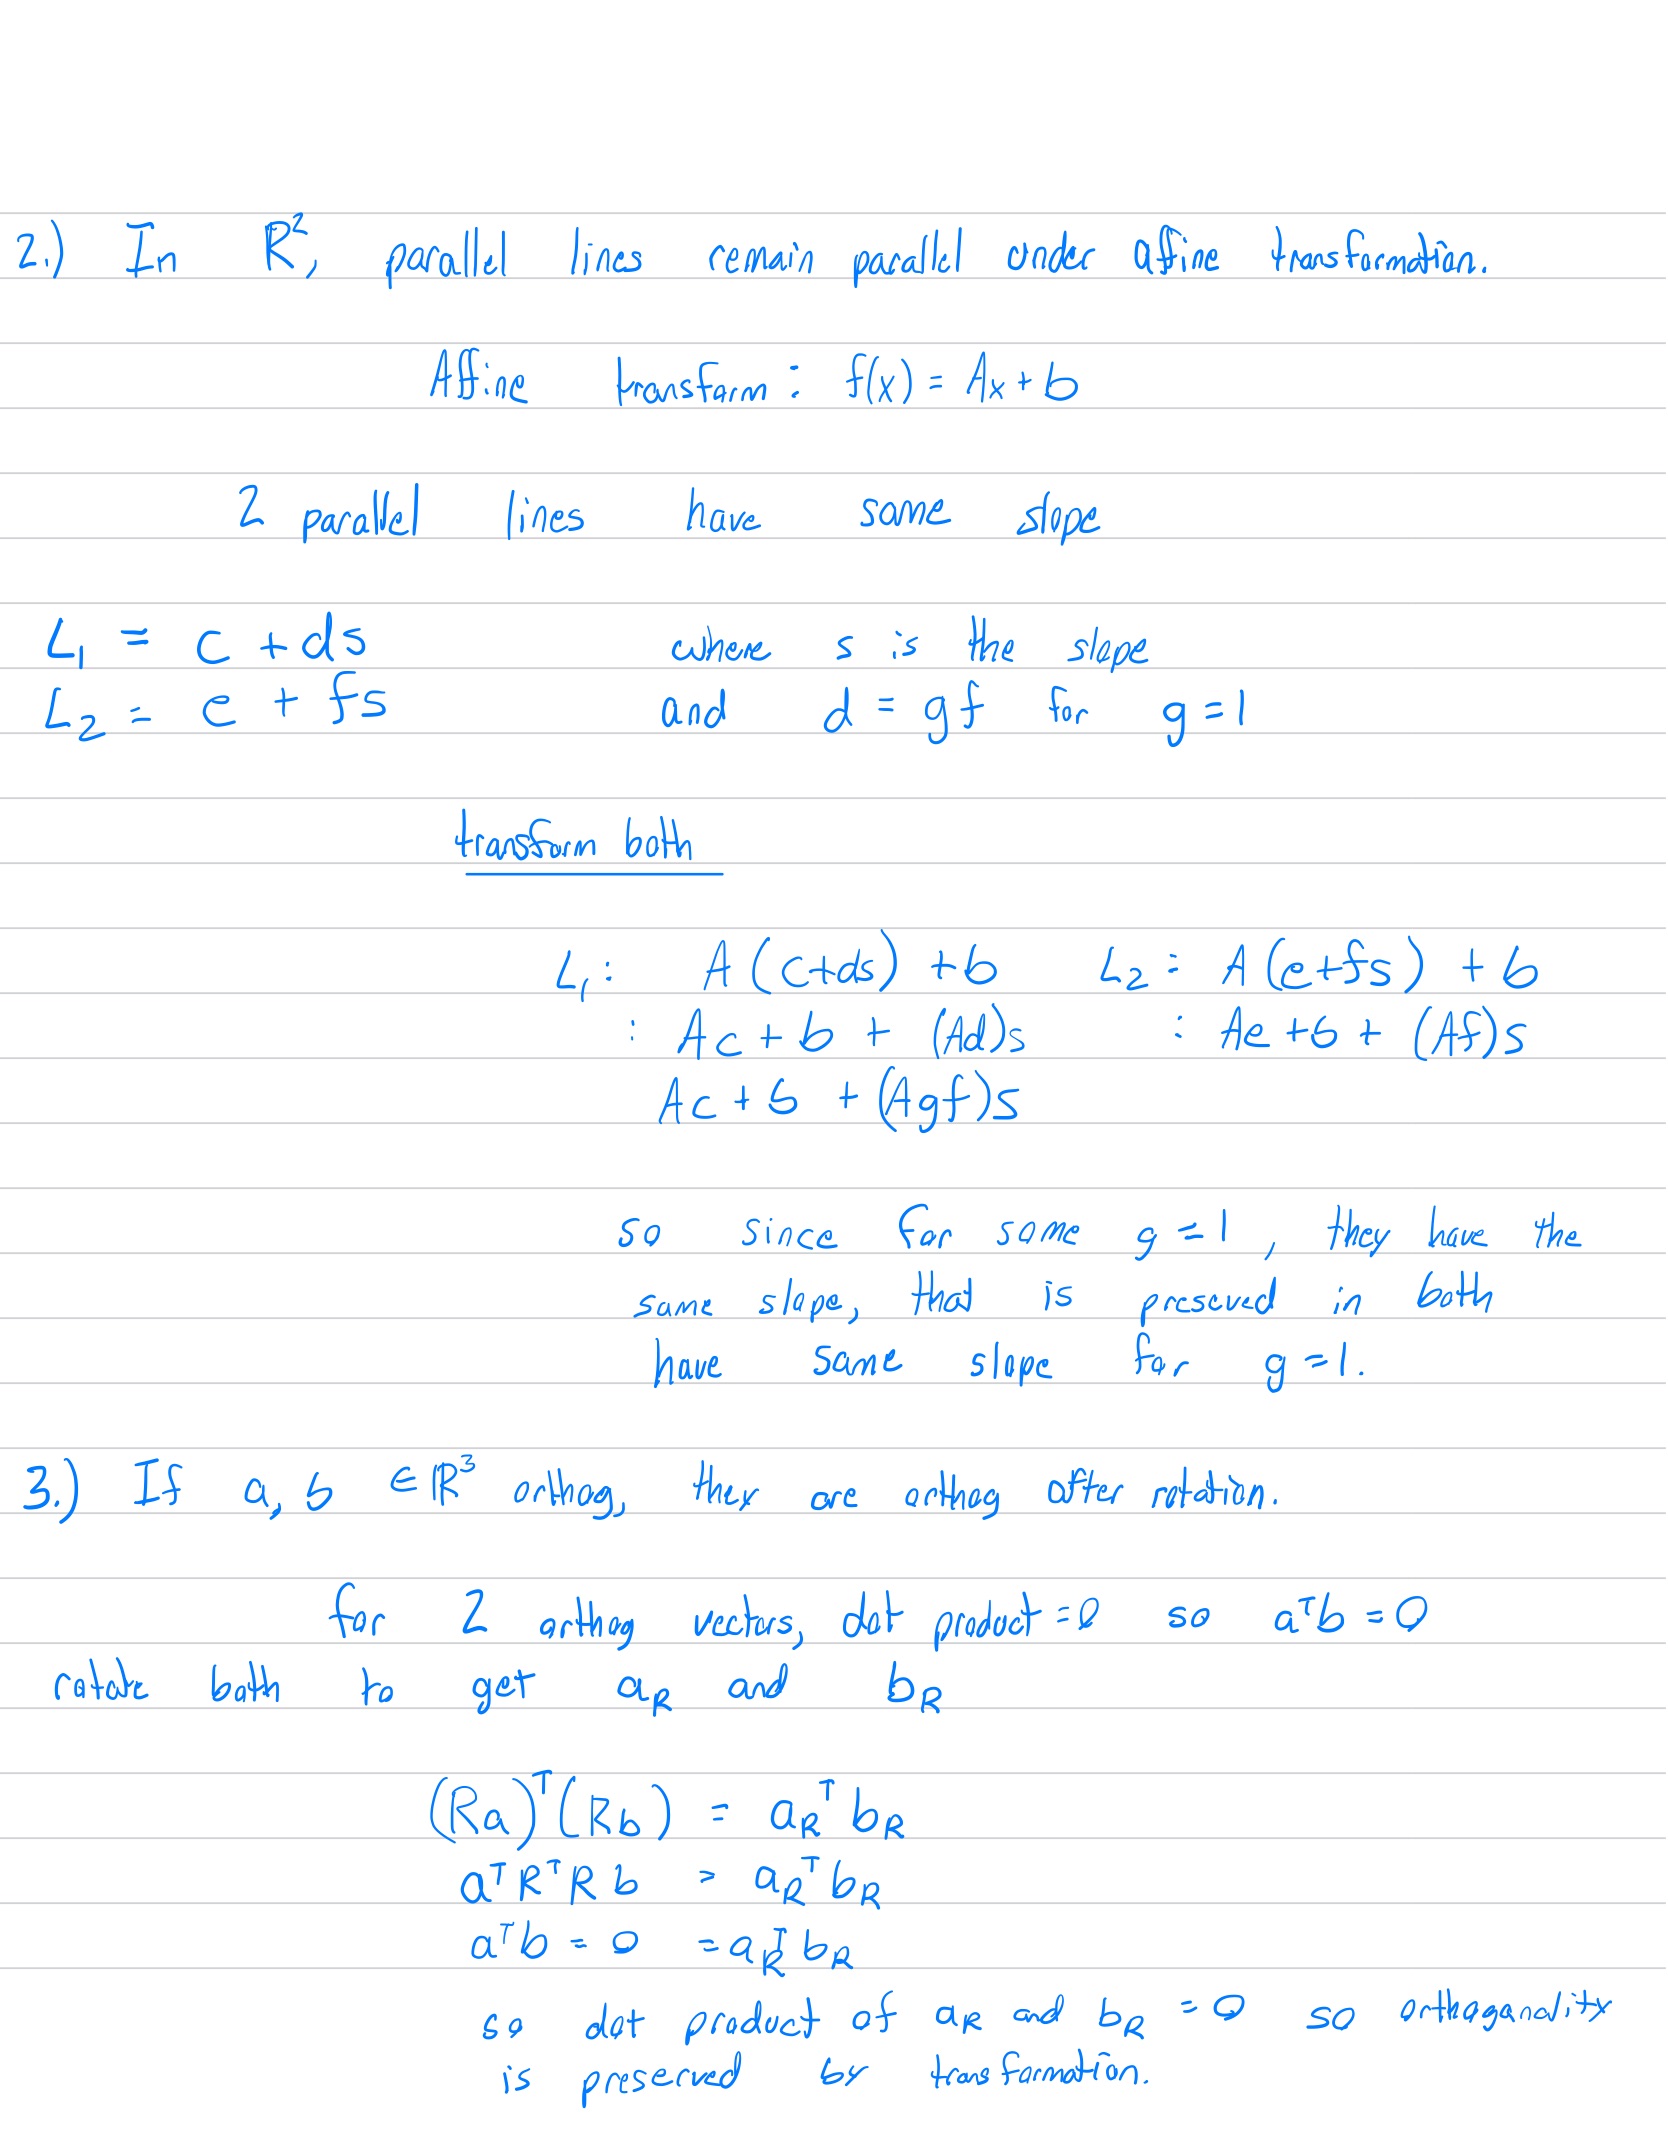 2.) In R², parallel lines remain parallel under affine transformation.
Affine transform: f(x) = Ax + b
2 parallel lines have same slope
L₁ = c + ds where s is the slope
L₂ = e + fs and d = gf for g = 1
transform both
L₁: A(c+ds) + b L₂: A(e+fs) + b
: Ac + b + (Ad)s : Ae + b + (Af)s
Ac + b + (Agf)s
so since for some g = 1, they have the
same slope, that is preseved in both
have same slope for g = 1.
3.) If a, b ∈ ℝ³ orthog, they are orthog after rotation.
for 2 orthog vectors, dot product = 0 so aᵀb = 0
rotate both to get a_R and b_R
(Ra)ᵀ(Rb) = a_Rᵀ b_R
aᵀRᵀRb = a_Rᵀ b_R
aᵀb = 0 = a_Rᵀ b_R
so dot product of a_R and b_R = 0 so orthoganality
is preserved by transformation.